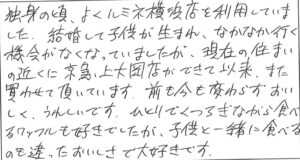 独身の頃、よくルミネ横浜店を利用していま
した。結婚して子供が生まれ、なかなか行く
機会がなくなっていましたが、現在の住まい
の近くに京急上大岡店ができて以来、また
買わせて頂いています。前も今も変わらずおい
しく、うれしいです。ひとりでくつろぎながら食べ
るワッフルも好きでしたが、子供と一緒に食べる
のも違ったおいしさで大好きです。